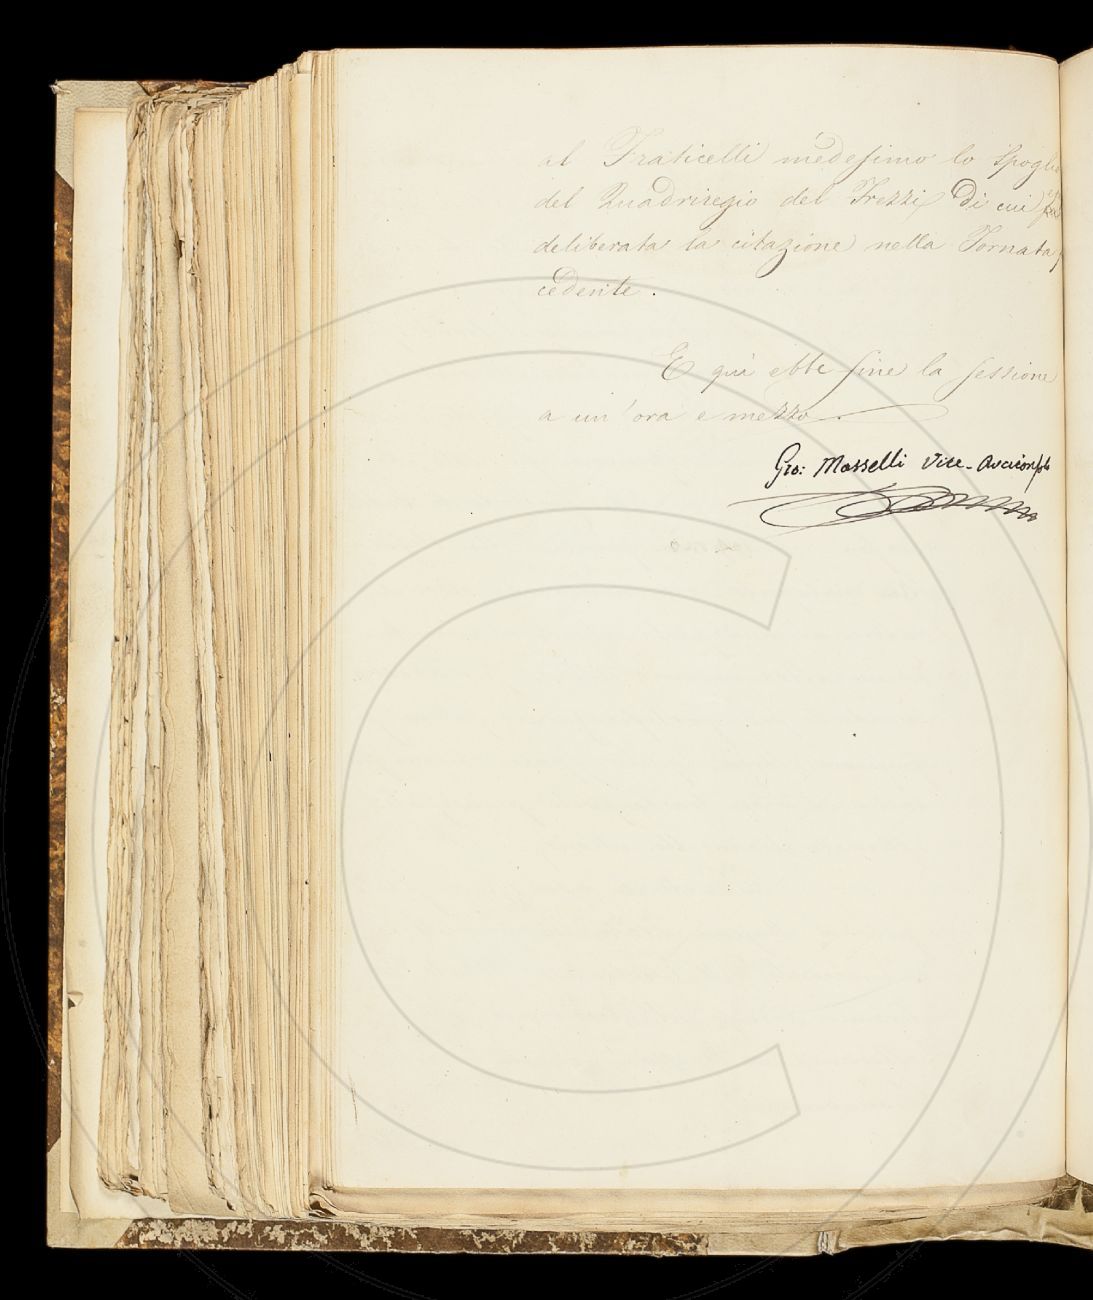 al Fraticelli medesimo lo spoglio
del Quadriregio del Frezzi, di cui
deliberata la citazione nella Tornata
cedente.
E quì ebbe fine la sessione
a un'ora e mezzo.
Gio: Masselli Vice-